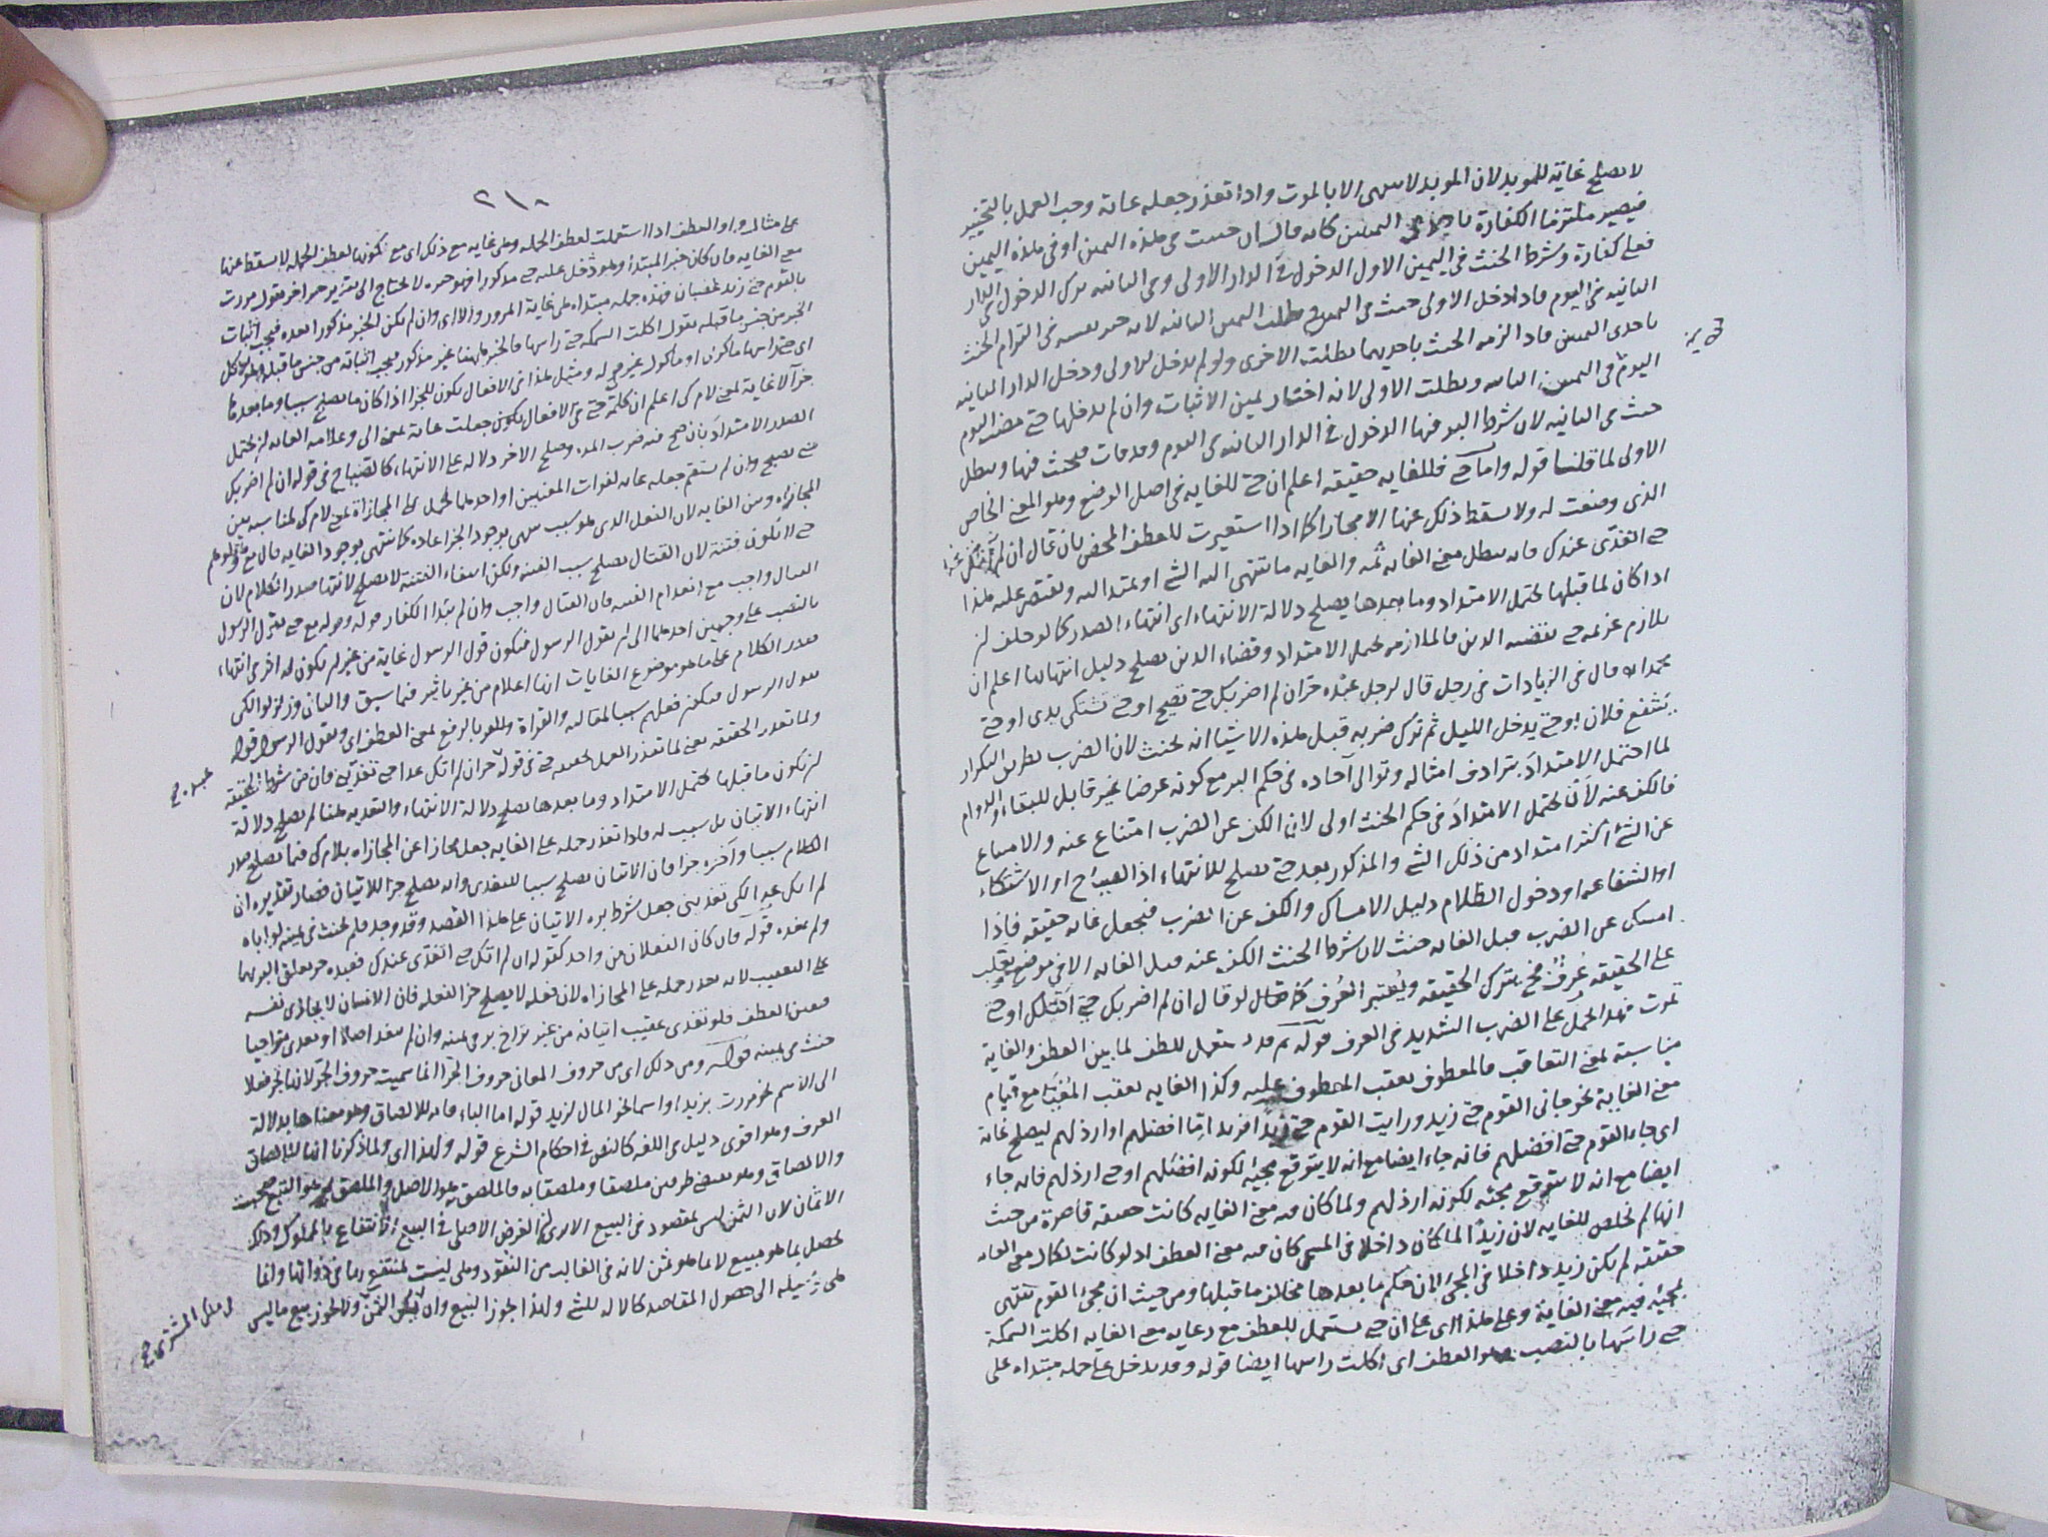 لا يصلح غاية للمويد لان المويد لا ينتهى الا بالموت واذا تعذر جعله غاية وجب العمل بالتخيير
فيصير ملتزما الكفارة باحدى اليمينين كانه قال ان حنثت فى هذه اليمين او فى هذه اليمين
فعلى كفارة وشرط الحنث فى اليمين الاول الدخول فى الدار الاولى وفى الثانيه ترك الدخول فى الدار
الثانيه فى اليوم فاذا دخل الاولى حنث فى اليمين و بطلت اليمين الثانيه لانه خير نفسه فى التزام الحنث
باحدى اليمينين فاذا لزمه الحنث باحديهما بطلت الاخرى ولو لم يدخل الاولى ودخل الدار الثانيه
اليوم فى اليمين الثانيه وبطلت الاولى لانه اختار يمين الاثبات وان لم يدخلها حتى مضى اليوم
حنث فى الثانيه لان شرط البر فيها الدخول فى الدار الثانيه فى اليوم وقد فات فيحنث فيها وبطل
الاولى لما قلنا قوله واما حتى فللغايه حقيقه اعلم ان حتى للغايه فى اصل الوضع وهو المعنى الخاص
الذى وضعت له ولا يسقط ذلك عنها الا مجازا كما اذا استعيرت للعطف المحض بان قال ان لم
حتى اتغدى عندك فانه يبطل معنى الغايه ثمه والغايه ما ينتهى اليه الشى او يمتد اليه ويقتصر عليه هذا
اذا كان لما قبلها يحتمل الامتداد وما بعدها يصلح دلالة الانتهاء اى انتهاء الصدر كما لو حلف ان
يلازم غريمه حتى يقضيه الدين فالملازمه يحتمل الامتداد وقضاء الدين يصلح دليل انتهائها اعلم ان
محمدا قال فى الزيادات فى رجل قال لرجل عبده حر ان لم اضربك حتى تصيح او حتى تشتكى يدى او حتى
يشفع فلان او حتى يدخل الليل ثم ترك ضربه قبل هذه الاشيا انه يحنث لان الضرب بطريق التكرار
لما احتمل الامتداد بترادف امثاله وتوالى آحاده فى حكم البر مع كونه عرضا غير قابل للبقاء والدوام
فالكف عنه لان يحتمل الامتداد فى حكم الحنث اولى لان الكف عن الضرب امتناع عنه والامتناع
عن الشئ اكثر امتدادا من ذلك الشى والمذكور بعد حتى يصلح للانتهاء اذ الصياح او الاشتكاء
او الشفاعه او دخول الظلام دليل الامساك والكف عن الضرب فيجعل غايه حقيقه فاذا
امسك عن الضرب قبل الغايه حنث لان شرط الحنث الكف عنه قبل الغايه الا فى موضع يغلب
على الحقيقه عرف فح يترك الحقيقه ويعتبر العرف كما لو قال ان لم اضربك حتى اقتلك او حتى
تموت فهذا يحمل على الضرب الشديد فى العرف قوله ثم قد يستعمل للعطف لما بين العطف والغاية
مناسبة بمعنى التعاقب فالمعطوف يعقب المعطوف عليه وكذا الغايه يعقب المغيا مع قيام
معنى الغاية نحو جانى القوم حتى زيد ورايت القوم حتى زيدا فزيد اما افضلهم او ارذلهم ليصلح غاية
اى جاء القوم حتى افضلهم فانه جاء ايضا مع انه لا يتوقع مجيئه لكونه افضلهم او حتى ارذلهم فانه جاء
ايضا مع انه لا يتوقع مجيئه لكونه ارذلهم ولما كان فيه معنى الغايه كانت حقيقه قاصرة من حيث
انها لم تخلص للغايه لان زيدا لما كان داخلا فى المجى كان فيه معنى العطف اذ لو كانت لكمال معنى الغايه
حقيقه لم يكن زيد داخلا فى المجئ لان حكم ما بعدها مخالف ما قبلها ومن حيث ان مجئ القوم ينتهى
بمجيئه فيه معنى الغاية وعلى هذا اى على ان حتى يستعمل للعطف مع رعايه معنى الغايه اكلت السمكة
حتى راسها بالنصب هو العطف اى اكلت راسها ايضا قوله وقد يدخل على جمله مبتداه على
٢١٠
على مثال واو العطف اذا استعملت لعطف الجمله وهى غايه مع ذلك اى مع كونها لعطف الجمله لا يسقط عنها
معنى الغايه فان كان خبر المبتدا وهو تدخل عليه حتى مذكورا فهو خبره لا يحتاج الى تقدير خبر اخر يقول مررت
بالقوم حتى زيد غضبان فهذه جمله مبتداه هى غاية المرور والا اى وان لم يكن الخبر مذكورا بعده فيجب اثبات
الخبر من جنس ما قبله يقول اكلت السمكه حتى راسها فالخبر ههنا غير مذكور فيجب اثباته من جنس ما قبله وهو الاكل
اى حتى راسها ماكول او ماكول غيرى له ومثل هذا فى الافعال يكون للجزا اذا كان ما يصلح سببا وما بعدها
جزآ لا غاية بمعنى لام كى اعلم ان كلمة حتى فى الافعال يكون جعلت غاية بمعنى الى وعلامه الغايه ان يحتمل
الصدر الامتداد بان صح فيه ضرب المده وصلح الاخر دلاله على الانتهاء كالصياح فى قوله ان لم اضربك
حتى تصيح وان لم يستقم جعله غايه لفوات المعنيين او احدهما يحمل على المجازاة بمعنى لام كى لمناسبه بين
المجازاه وبين الغايه لان الفعل الذى هو سبب ينتهى بوجود الجزا عاده كما ينتهى بوجود الغايه قال تع وقاتلوهم
حتى لا تكون فتنة لان القتال يصلح سبب الفتنه ولكن انتفاء الفتنة لا يصلح لانتها صدر الكلام لان
القتال واجب مع انعدام الفتنه فان القتال واجب وان لم يبتدا الكفار قوله وقوله تع حتى يقول الرسول
بالنصب على وجهين احدهما الى ان يقول الرسول فيكون قول الرسول غاية من غير ان يكون له اثر فى انتهاء
صدر الكلام على ما هو موضوع الغايات انها اعلام من غير تاثير فيما سبق والثانى وزلزلوا لكى
يقول الرسول فيكون فعلهم سببا لمقاله والقراة بالرفع بمعنى العطف اى ويقول الرسول قوله
ولما تعذر الحقيقه يعنى لما تعذر العمل بحقيقه حتى فى قوله حر ان لم اتك غدا حتى تغدينى فان من شرط الحقيقه
ان يكون ما قبلها يحتمل الامتداد وما بعدها يصلح دلالة الانتهاء والتغديه ههنا لم يصلح دلالة
انتهاء الاتيان بل سبب له فاذا تعذر حمله على الغايه جعل مجازا عن المجازاه بلام كى فيما يصلح صدر
الكلام سببا وآخره جزا فان الاتيان يصلح سببا للتغدى وانه يصلح جزا للاتيان فصار تقديره ان
لم اتك غدا لكى تغدينى جعل شرط بره الاتيان على هذا القصد وقد وجد فلم يحنث فى يمينه لو اتاه
ولم يغده قوله فان كان الفعلان من واحد كقوله ان لم اتك حتى اتغدى عندك فعبده حر تعلق البر بهما
على التعقيب لانه تعذر حمله على المجازاه لان فعله لا يصلح جزا لفعله فان الانسان لا يجازى نفسه
فتعين العطف فلو تغدى عقيب اتيانه من غير تراخ بر فى يمينه وان لم يتغد اصلا او تغدى متراخيا
حنث فى يمينه قوله ومن ذلك اى من حروف المعانى حروف الجر انما سميت حروف الجر لانها تجر فعلا
الى الاسم نحو مررت بزيد او اسما نحو المال لزيد قوله اما الباء فانه للالصاق وهو معناها بدلالة
العرف وهو اقوى دليل فى اللغه كالنص فى احكام الشرع قوله ولهذا اى ولما ذكرنا انها للالصاق
والالصاق وهو يقتضى طرفين ملصقا وملصقا به فالملصق به هو الاصل والملصق هو التبع صحبت
الاثمان لان الثمن ليس بمقصود فى البيع الا ترى ان الغرض الاصلى فى البيع الانتفاع بالمملوك وذلك
يحصل بما هو مبيع لا بما هو ثمن لانه فى الغالب من النقود وهى ليست بمنتفع بها فى ذواتها وانما
هى وسيله الى حصول المقاصد كالاله للشى ولهذا يجوز البيع وان لم يكن الثمن ولا يجوز بيع ما ليس
فى ملك المشترى